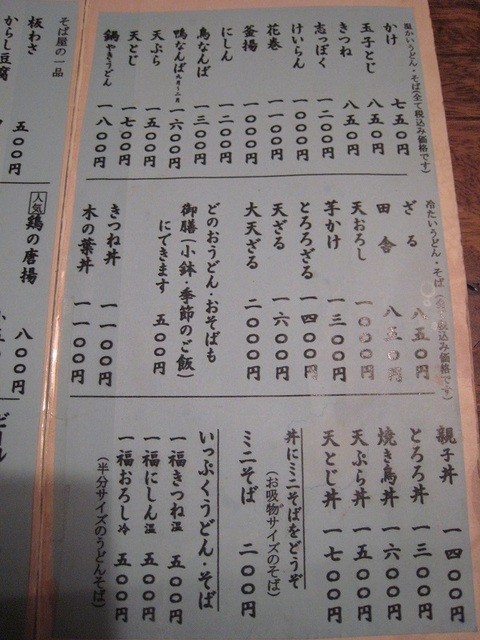 温かいうどん・そば(全て税込み価格です)
かけ 七五〇円
玉子とじ 八五〇円
きつね 八五〇円
志っぽく 一二〇〇円
けいらん 一〇〇〇円
花巻 一一〇〇円
釜揚 一〇〇〇円
にしん 一二〇〇円
鳥なんば 一三〇〇円
鴨なんば 一六〇〇円
天ぷら 一五〇〇円
天とじ 一七〇〇円
鍋やきうどん 一八〇〇円
冷たいうどん・そば(全て税込み価格です)
ざる 八五〇円
田舎 八五〇円
天おろし
芋かけ 一三〇〇円
とろろざる 一四〇〇円
天ざる 一六〇〇円
大天ざる 二〇〇〇円
どのおうどん・おそばも
御膳(小鉢・季節のご飯)
にできます 五〇〇円
きつね丼 一一〇〇円
木の葉丼 一一〇〇円
親子丼 一四〇〇円
とろろ丼 一三〇〇円
焼き鳥丼 一六〇〇円
天ぷら丼 一五〇〇円
天とじ丼 一七〇〇円
丼にミニそばをどうぞ
(お吸物サイズのそば)
ミニそば 二〇〇円
いっぷくうどん・そば
一福きつね温 五〇〇円
一福にしん温 五〇〇円
一福おろし冷 五〇〇円
(半分サイズのうどんそば)
そば屋の一品
板わさ 五〇〇円
からし豆腐
人気 鶏の唐揚 八〇〇円